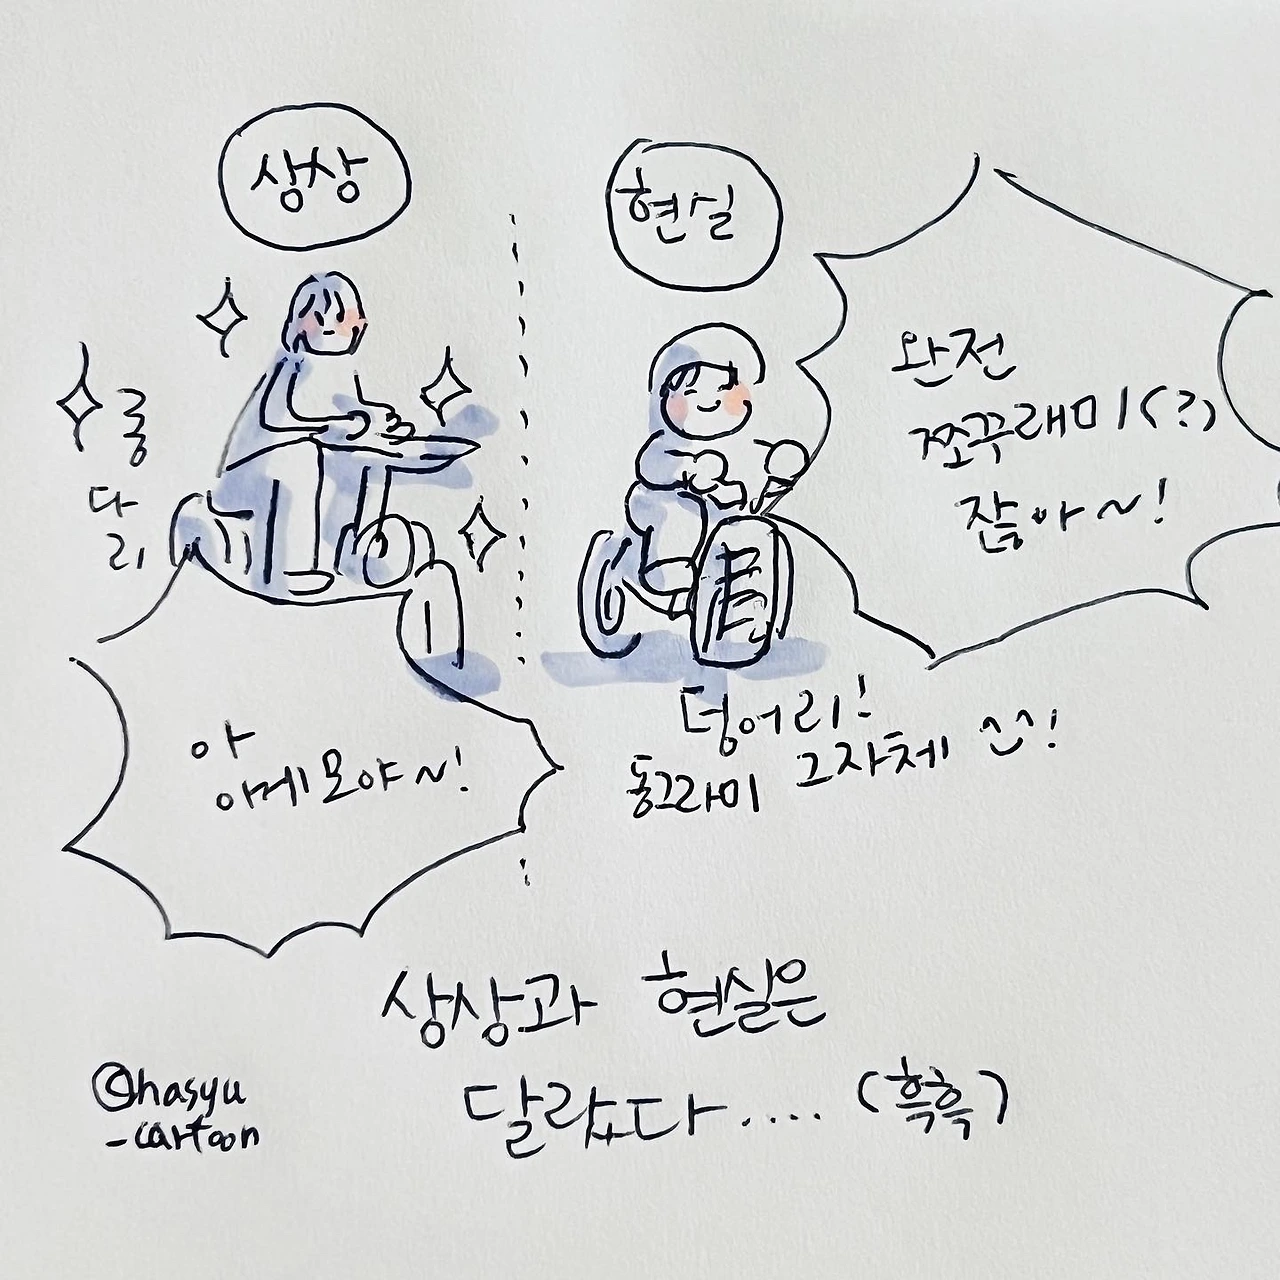 상상
롱
다
리
아
아메모야~!
현실
완전
쪼꾸래미(?)
잖아~!
덩어리!
동그라미 그자체 ^^!
상상과 현실은
달랐다.... (흑흑)
@hasyu
-cartoon